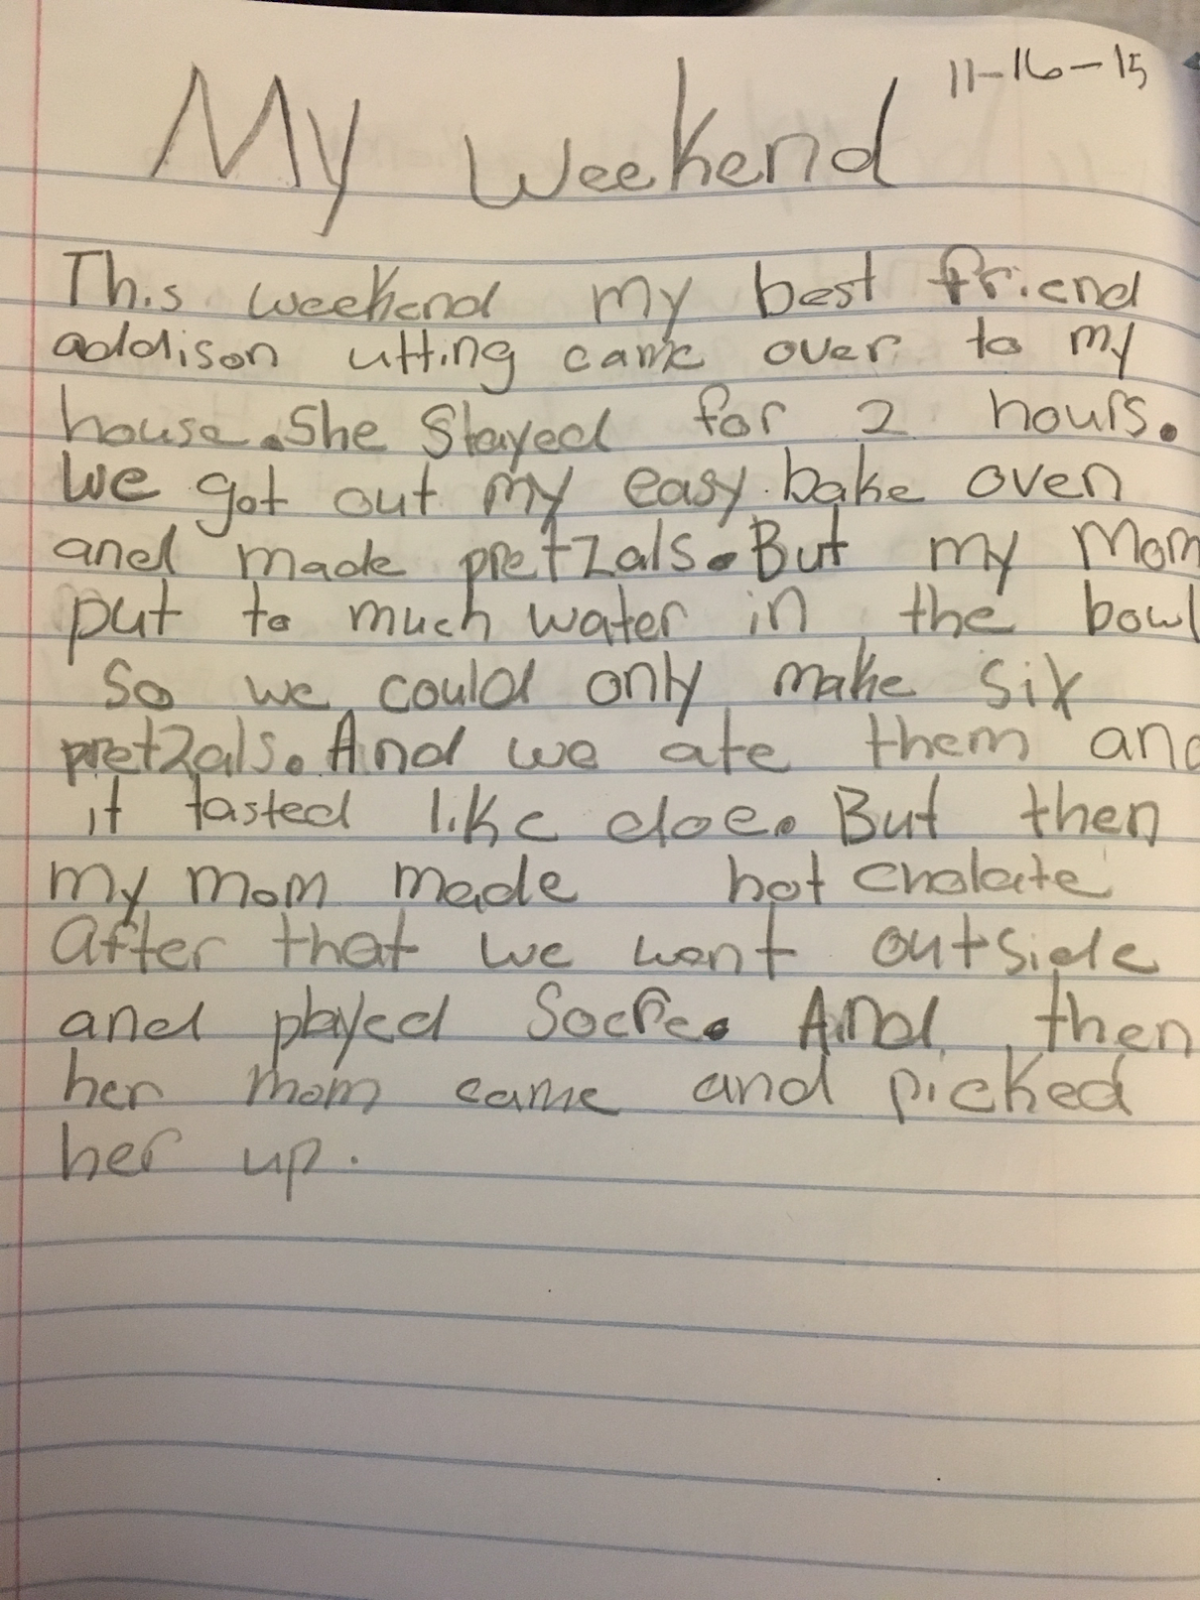 11-16-15
My weekend
This weekend my best friend
addison utting came over to my
house. She Stayed for 2 hours.
We got out my easy bake oven
and made pretzals. But my Mom
put to much water in the bowl
So we could only make six
pretzals. And we ate them and
it tasted like doe. But then
my mom made hot cholate
After that we went outside
and played Socre. And then
her mom came and picked
her up.